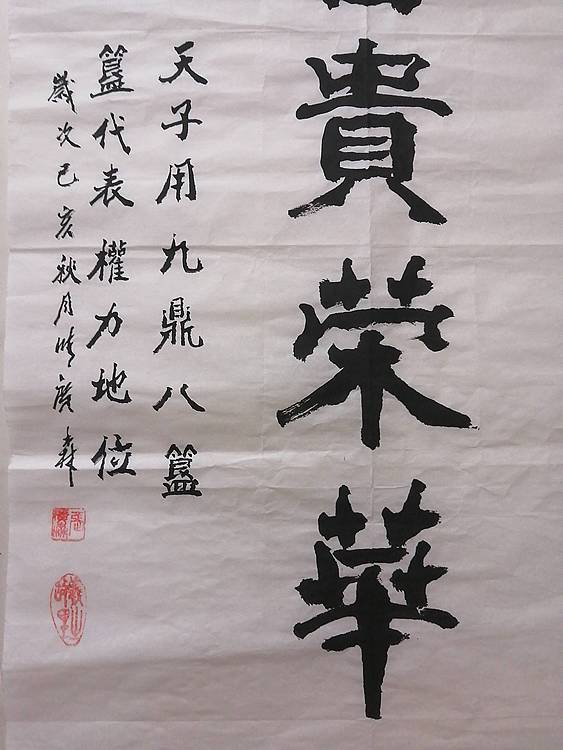 貴榮華
天子用九鼎八簋
簋代表權力地位
歲次己亥秋月時廣森